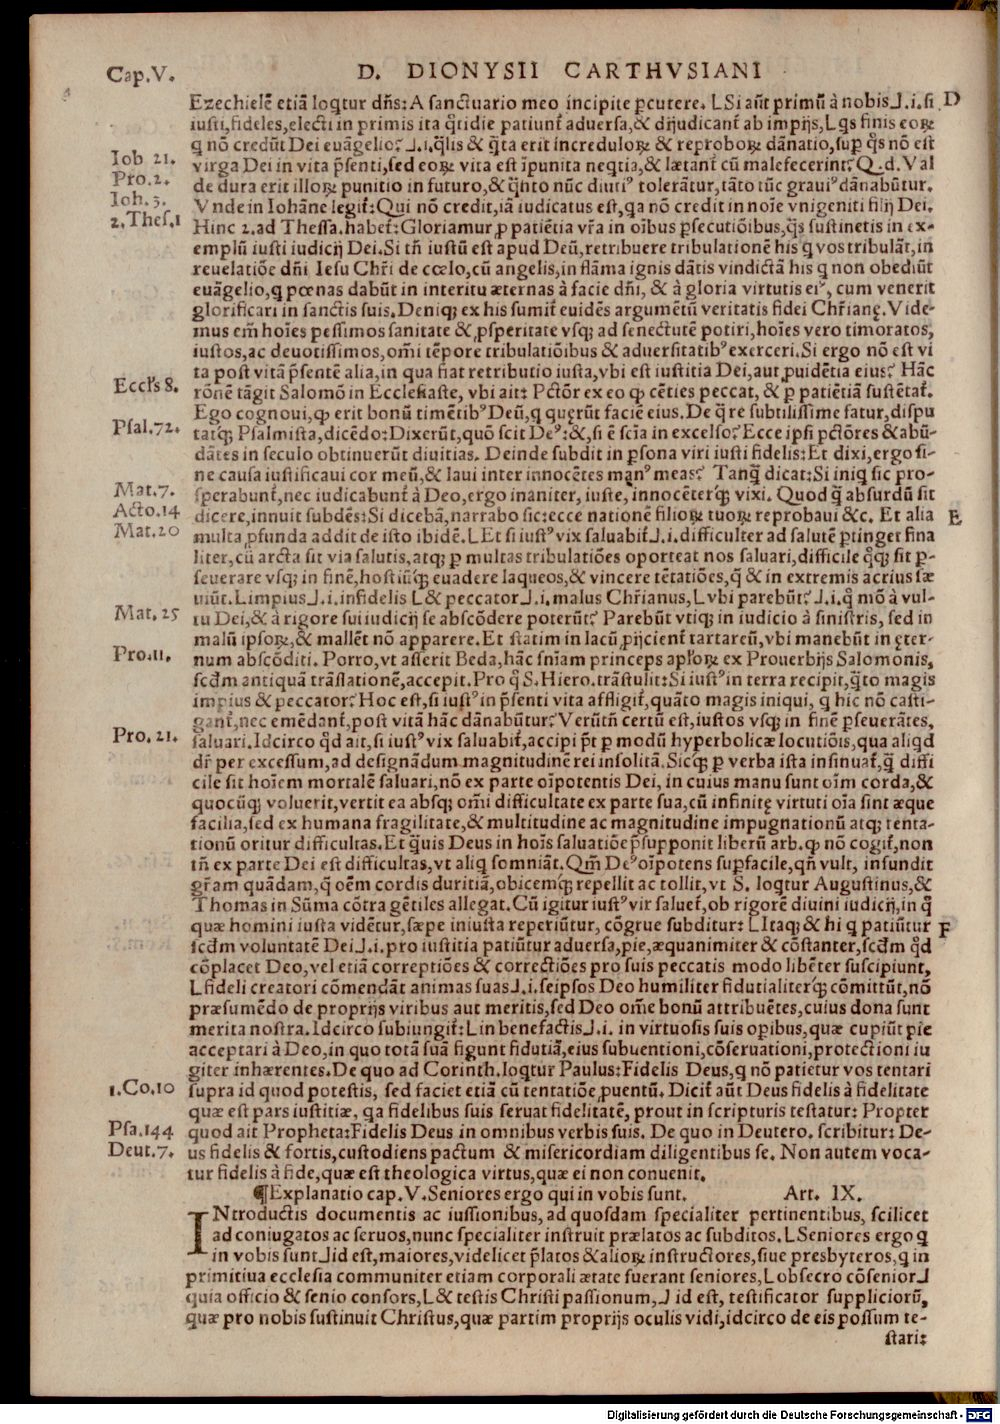 Cap.V.
D. DIONYSII CARTHVSIANI
Ezechielẽ etiã loqtur dñs: A sanctuario meo incipite ꝑcutere. LSi aũt primũ à nobis⅃.i.si D
iusti,fideles,electi in primis ita q̃tidie patiunt̃ aduersa,& dijudicant̃ ab impijs,Lqs finis eoꝝ
q nõ credũt Dei euãgelio?⅃.i.q̃lis & q̃ta erit increduloꝝ & reproboꝝ dãnatio,suꝑ q̃s nõ est
Iob 21.
virga Dei in vita p̃senti,sed eoꝝ vita est ĩpunita neqtia,& lætant̃ cũ malefecerint? Q.d.Val
Pro.2.
de dura erit illoꝝ punitio in futuro,& q̃nto nũc diutiꝰ tolerãtur,tãto tũc grauiꝰ dãnabũtur.
Ioh. 3.
Vnde in Iohãne legit̃: Qui nõ credit,iã iudicatus est,qa nõ credit in noĩe vnigeniti filij Dei.
2.Thes.1
Hinc 2.ad Thessa.habet̃: Gloriamur ꝓ patiẽtia vr̃a in oĩbus ꝑsecutiõibus,q̃s sustinetis in ex-
emplũ iusti iudicij Dei.Si tñ iustũ est apud Deũ,retribuere tribulationẽ his q vos tribulãt,in
reuelatiõe dñi Iesu Chr̃i de cœlo,cũ angelis,in flãma ignis dãtis vindictã his q non obediũt
euãgelio,q pœnas dabũt in interitu æternas à facie dñi, & à gloria virtutis eiꝰ, cum venerit
glorificari in sanctis suis.Deniqꝫ ex his sumit̃ euidẽs argumẽtũ veritatis fidei Chr̃ianę.Vide-
mus em̃ hoĩes pessimos sanitate & ꝓsperitate vsqꝫ ad senectutẽ potiri,hoĩes vero timoratos,
iustos,ac deuotissimos,om̃i tẽpore tribulatiõibus & aduersitatibꝰ exerceri.Si ergo nõ est vi
ta post vitã p̃sentẽ alia,in qua fiat retributio iusta,vbi est iustitia Dei,aut ꝓuidẽtia eius? Hãc
Eccl̃s 8.
rõnẽ tãgit Salomõ in Ecclesiaste, vbi ait: Pctõr ex eo qꝫ cẽties peccat, & ꝑ patiẽtiã sustẽtat̃.
Ego cognoui,qꝫ erit bonũ timẽtibꝰ Deũ,q quęrũt faciẽ eius.De q̃ re subtilissime fatur,dispu
Psal.72.
tatqꝫ Psalmista,dicẽdo: Dixerũt,quõ scit Deꝰ:&,si ẽ scĩa in excelso? Ecce ipsi pctõres & abũ-
dãtes in seculo obtinuerũt diuitias. Deinde subdit in ꝑsona viri iusti fidelis: Et dixi,ergo si-
ne causa iustificaui cor meũ,& laui inter innocẽtes manꝰ meas? Tanq̃ dicat: Si iniq sic pro-
Mat.7.
sperabunt̃,nec iudicabunt̃ à Deo,ergo inaniter, iuste, innocẽterqꝫ vixi. Quod q̃ absurdũ sit
Acto.14
dicere,innuit subdẽs: Si dicebã,narrabo sic:ecce nationẽ filioꝝ tuoꝝ reprobaui &c. Et alia E
Mat.20
multa ꝓfunda addit de isto ibidẽ. LEt si iustꝰ vix saluabit̃⅃.i.difficulter ad salutẽ ꝑtinget fina
liter,cũ arcta sit via salutis,atqꝫ ꝑ multas tribulatiões oporteat nos saluari,difficile qꝫ sit ꝑ-
seuerare vsqꝫ in finẽ,hostiũqꝫ euadere laqueos,& vincere tẽtatiões,q̃ & in extremis acrius sæ
uiũt.Limpius⅃.i.infidelis L& peccator⅃.i.malus Chr̃ianus,Lvbi parebũt?⅃.i.q̃ mõ à vul-
Mat. 25
tu Dei,& à rigore sui iudicij se abscõdere poterũt? Parebũt vtiqꝫ in iudicio à sinistris, sed in
malũ ipsoꝝ,& mallẽt nõ apparere. Et statim in lacũ ꝓijcient̃ tartareũ,vbi manebũt in ęter-
Pro.11.
num abscõditi. Porro,vt asserit Beda,hãc sñiam princeps apl̃oꝝ ex Prouerbijs Salomonis,
scđm antiquã trãslationẽ,accepit.Pro q̃ S.Hiero.trãstulit: Si iustꝰ in terra recipit,q̃to magis
impius & peccator? Hoc est,si iustꝰ in p̃senti vita affligit̃,quãto magis iniqui, q hic nõ casti-
gant̃,nec emẽdant̃,post vitã hãc dãnabũtur? Verũtñ certũ est,iustos vsqꝫ in finẽ ꝑseuerãtes,
Pro. 21.
saluari.Idcirco qđ ait,si iustꝰ vix saluabit̃,accipi p̃t ꝑ modũ hyperbolicæ locutiõis,qua aliqđ
dr̃ per excessum,ad designãdum magnitudinẽ rei insolitã. Sicqꝫ ꝑ verba ista insinuat̃,q̃ diffi
cile sit hoĩem mortalẽ saluari,nõ ex parte oĩpotentis Dei, in cuius manu sunt oĩm corda,&
quocũqꝫ voluerit,vertit ea absqꝫ om̃i difficultate ex parte sua,cũ infinitę virtuti oĩa sint æque
facilia,sed ex humana fragilitate,& multitudine ac magnitudine impugnationũ atqꝫ tenta-
tionũ oritur difficultas. Et q̃uis Deus in hoĩs saluatiõe p̃supponit liberũ arb. qꝫ nõ cogit̃,non
tñ ex parte Dei est difficultas,vt aliq somniãt. Qm̃ Deꝰ oĩpotens suꝑfacile,qñ vult, infundit
gr̃am quãdam,q̃ oẽm cordis duritiã,obicemqꝫ repellit ac tollit,vt S. loqtur Augustinus,&
Thomas in Sũma cõtra gẽtiles allegat. Cũ igitur iustꝰ vir saluet̃,ob rigorẽ diuini iudicij,in q̃
quæ homini iusta vidẽtur,sæpe iniusta reperiũtur, cõgrue subditur: LItaqꝫ & hi q patiũtur F
scđm voluntatẽ Dei⅃.i.pro iustitia patiũtur aduersa,pie,æquanimiter & cõstanter,scđm qđ
cõplacet Deo,vel etiã correptiões & correctiões pro suis peccatis modo libẽter suscipiunt,
Lfideli creatori cõmendãt animas suas⅃.i.seipsos Deo humiliter fidutialiterqꝫ cõmittũt,nõ
præsumẽdo de proprijs viribus aut meritis,sed Deo om̃e bonũ attribuẽtes,cuius dona sunt
merita nostra.Idcirco subiungit̃: Lin benefactis⅃.i. in virtuosis suis oꝑibus,quæ cupiũt pie
acceptari à Deo,in quo totã suã figunt fidutiã,eius subuentioni,cõseruationi,protectioni iu
giter inhærentes.De quo ad Corinth.loqtur Paulus: Fidelis Deus,q nõ patietur vos tentari
1.Co.10
supra id quod potestis, sed faciet etiã cũ tentatiõe ꝓuentũ. Dicit̃ aũt Deus fidelis à fidelitate
quæ est pars iustitiæ, qa fidelibus suis seruat fidelitatẽ, prout in scripturis testatur: Propter
Psa.144
quod ait Propheta: Fidelis Deus in omnibus verbis suis. De quo in Deutero. scribitur: De-
Deut.7.
us fidelis & fortis,custodiens pactum & misericordiam diligentibus se. Non autem voca-
tur fidelis à fide,quæ est theologica virtus,quæ ei non conuenit.
¶Explanatio cap.V.Seniores ergo qui in vobis sunt. Art. IX.
INtroductis documentis ac iussionibus, ad quosdam specialiter pertinentibus, scilicet
ad coniugatos ac seruos,nunc specialiter instruit prælatos ac subditos.LSeniores ergo q
in vobis sunt⅃id est,maiores,videlicet p̃latos & alioꝝ instructores,siue presbyteros,q in
primitiua ecclesia communiter etiam corporali ætate fuerant seniores,Lobsecro cõsenior⅃
quia officio & senio consors,L& testis Christi passionum,⅃ id est, testificator suppliciorũ,
quæ pro nobis sustinuit Christus,quæ partim proprijs oculis vidi,idcirco de eis possum te-
stari:
Digitalisierung gefördert durch die Deutsche Forschungsgemeinschaft - DFG